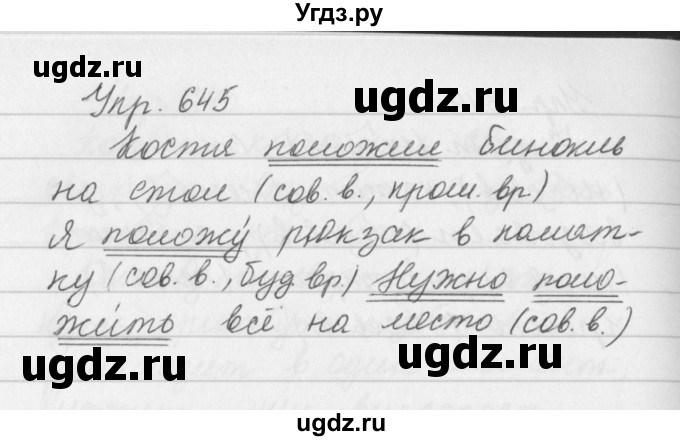 Угдз.ру
ugdz.ru
ugdz.ru
Упр. 645
Костя положил бинокль
на стол (сов. в., прош. вр.)
Я положу́ рюкзак в палат-
ку (сов. в., буд вр.) Нужно поло-
жи́ть всё на место (сов. в.)
ugdz.ru
ugdz.ru
ugdz.ru